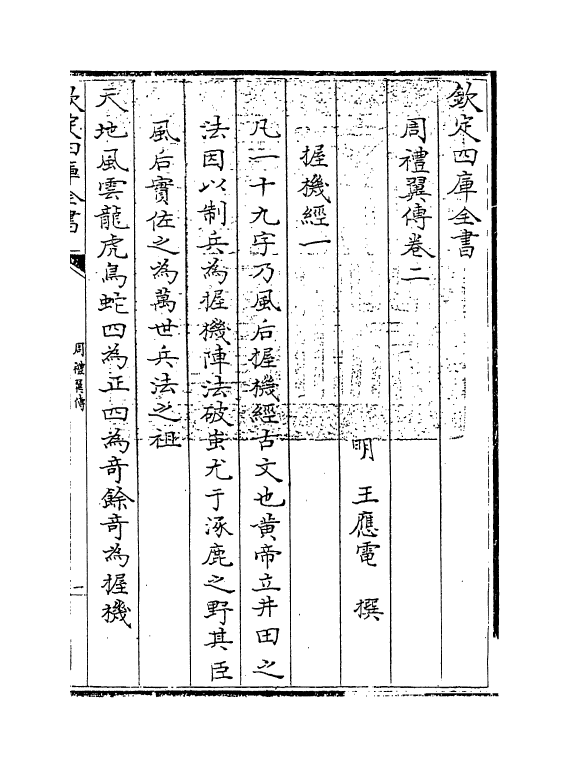 欽定四庫全書
周禮翼傳卷二
明 王應電 撰
握機經一
凡一十九字乃風后握機經古文也黄帝立井田之
法因以制兵為握機陣法破蚩尤于涿鹿之野其臣
風后實佐之為萬世兵法之祖
天地風雲龍虎鳥蛇四為正四為奇餘奇為握機
欽定四庫全書
周禮翼傳
一